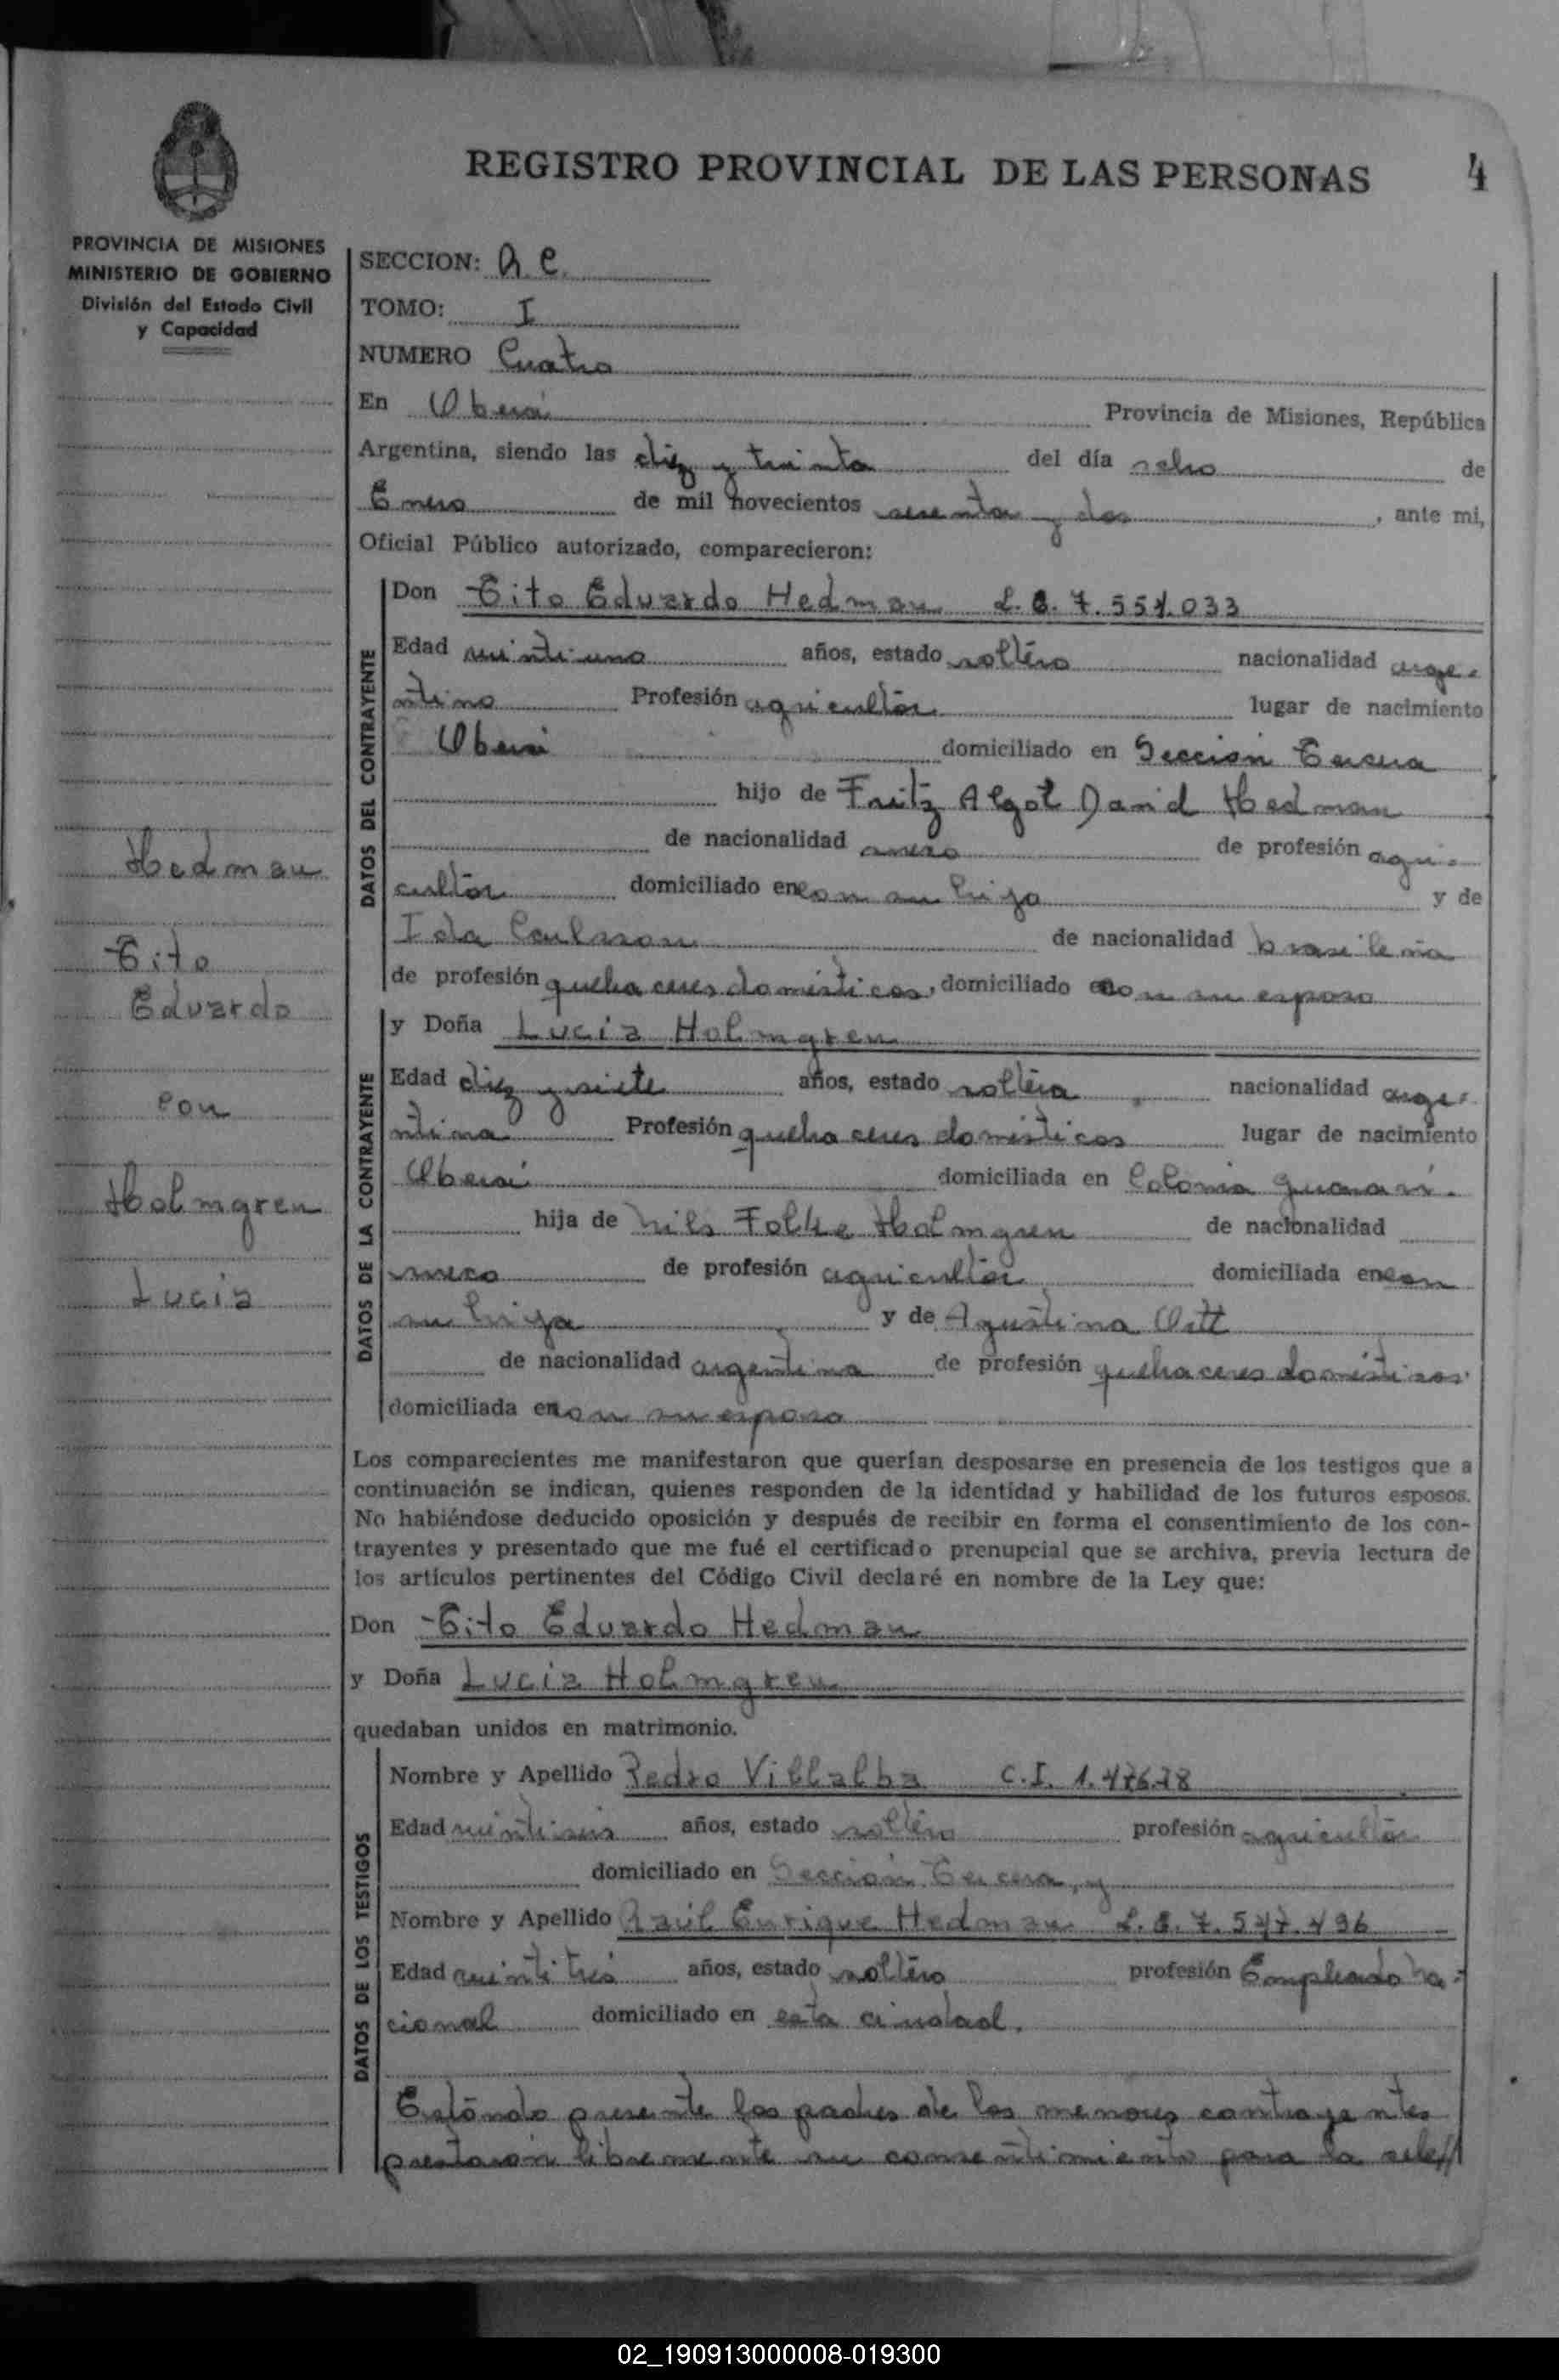 REGISTRO PROVINCIAL DE LAS PERSONAS 4
PROVINCIA DE MISIONES
MINISTERIO DE GOBIERNO
División del Estado Civil
y Capacidad
Hedman
Tito
Eduardo
con
Holmgren
Lucia
SECCION:
TOMO: I
NUMERO Cuatro
En Oberá Provincia de Misiones, República
Argentina, siendo las diez y treinta del día ocho de
Enero de mil novecientos sesenta y dos, ante mi,
Oficial Público autorizado, comparecieron:
DATOS DEL CONTRAYENTE
Don Tito Eduardo Hedman L.E. 7.551.033
Edad veintiuno años, estado soltero nacionalidad arge-
ntino Profesión agricultor lugar de nacimiento
Oberá domiciliado en Sección Tercera
hijo de Fritz Algot David Hedman
de nacionalidad sueco de profesión agri-
cultor domiciliado en con su hijo y de
Ida Carlsson de nacionalidad brasileña
de profesión quehaceres domésticos, domiciliado con su esposo
DATOS DE LA CONTRAYENTE
y Doña Lucia Holmgren
Edad diez y siete años, estado soltera nacionalidad arge-
ntina Profesión quehaceres domésticos lugar de nacimiento
Oberá domiciliada en Colonia Guaraní.
hija de Nils Folke Holmgren de nacionalidad
sueco de profesión agricultor domiciliada en con
su hija y de Agustina Ott
de nacionalidad argentina de profesión quehaceres domésticos
domiciliada en con su esposo
Los comparecientes me manifestaron que querían desposarse en presencia de los testigos que a
continuación se indican, quienes responden de la identidad y habilidad de los futuros esposos.
No habiéndose deducido oposición y después de recibir en forma el consentimiento de los con-
trayentes y presentado que me fué el certificado prenupcial que se archiva, previa lectura de
los artículos pertinentes del Código Civil declaré en nombre de la Ley que:
Don Tito Eduardo Hedman
y Doña Lucia Holmgren
quedaban unidos en matrimonio.
DATOS DE LOS TESTIGOS
Nombre y Apellido Pedro Villalba C.I.
Edad veintiseis años, estado soltero profesión agricultor
domiciliado en Sección Tercera, y
Nombre y Apellido Raúl Enrique Hedman L.E. 7.547.496
Edad veintitres años, estado soltero profesión Empleado Na-
cional domiciliado en esta ciudad.
Estando presente los padres de los menores contrayentes
prestaron libremente su consentimiento para la cele//
02_190913000008-019300